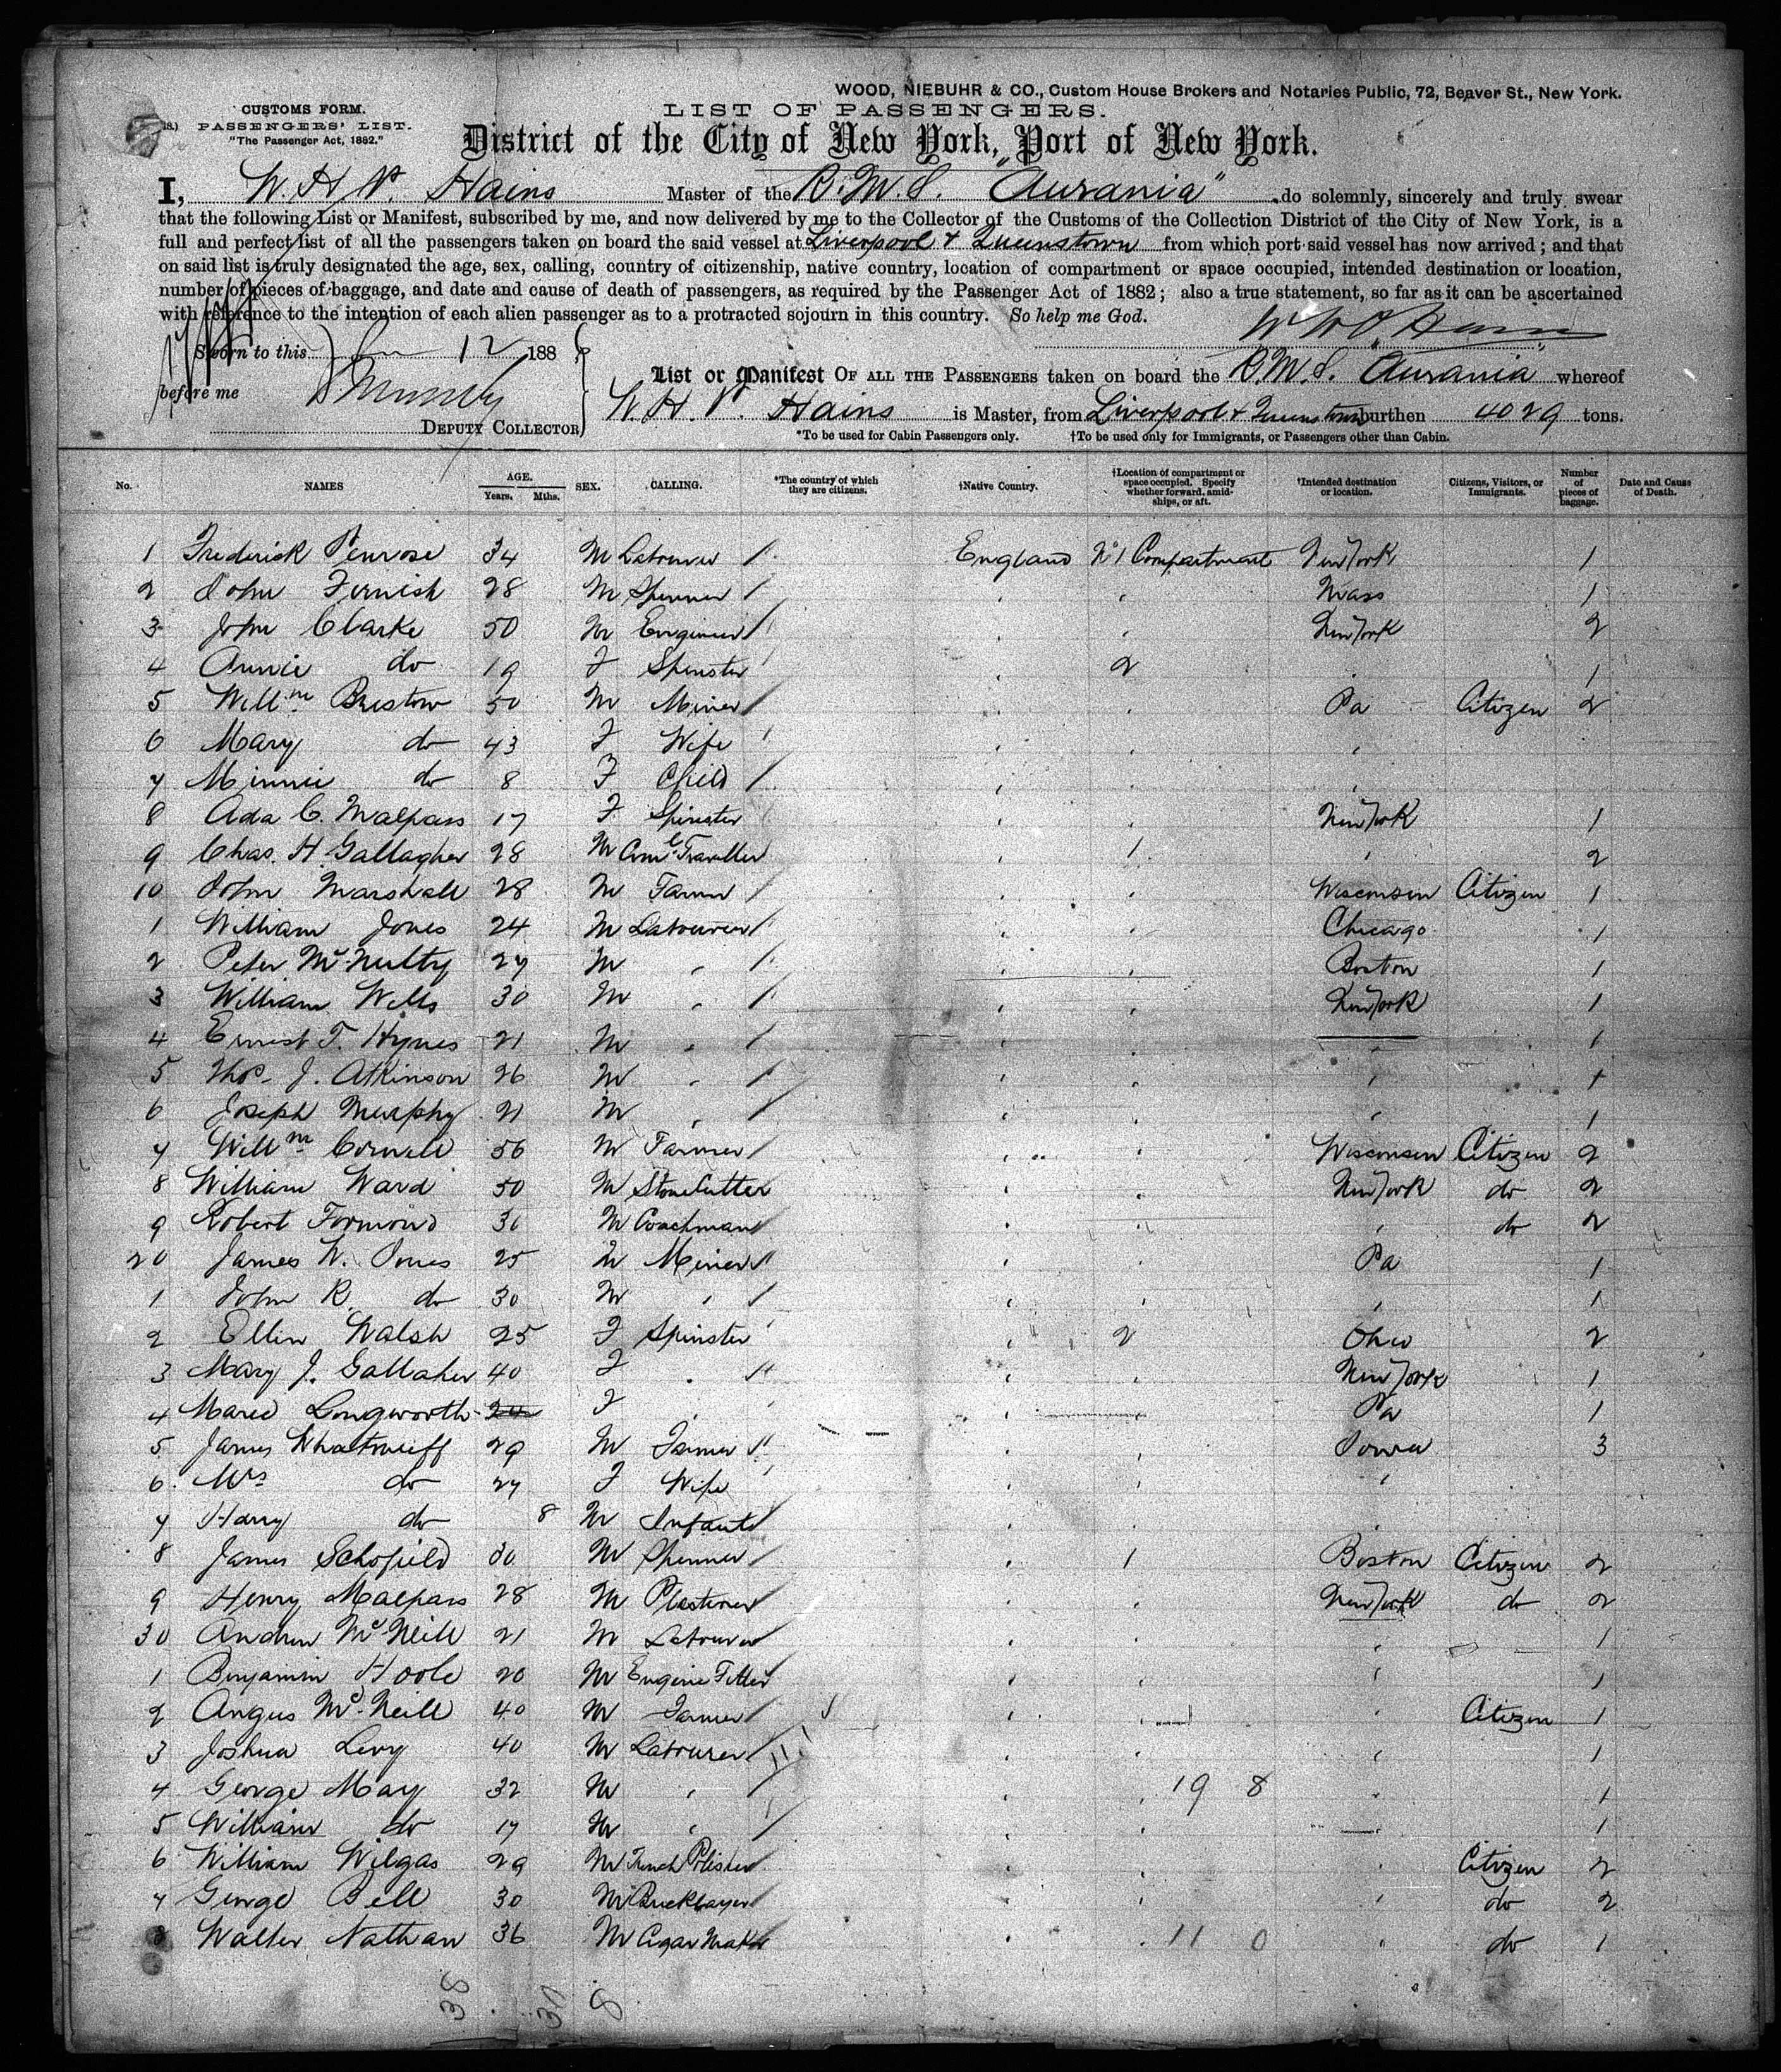 WOOD, NIEBUHR & CO., Custom House Brokers and Notaries Public, 72, Beaver St., New York.
CUSTOMS FORM.
LIST OF PASSENGERS.
PASSENGERS' LIST.
"The Passenger Act, 1882."
District of the City of New York, Port of New York.
I, W. H. P. Hains Master of the R.M.S. "Aurania" do solemnly, sincerely and truly swear
that the following List or Manifest, subscribed by me, and now delivered by me to the Collector of the Customs of the Collection District of the City of New York, is a
full and perfect list of all the passengers taken on board the said vessel at Liverpool & Queenstown from which port said vessel has now arrived; and that
on said list is truly designated the age, sex, calling, country of citizenship, native country, location of compartment or space occupied, intended destination or location,
number of pieces of baggage, and date and cause of death of passengers, as required by the Passenger Act of 1882; also a true statement, so far as it can be ascertained
with reference to the intention of each alien passenger as to a protracted sojourn in this country. So help me God.
Sworn to this 12 1886
before me
DEPUTY COLLECTOR
List or Manifest OF ALL THE PASSENGERS taken on board the R.M.S. Aurania whereof
W. H. P. Hains is Master, from Liverpool & Queenstown burthen 4029 tons.
*To be used for Cabin Passengers only. †To be used only for Immigrants, or Passengers other than Cabin.
No. NAMES AGE. Years. Mths. SEX. CALLING. *The country of which they are citizens. †Native Country. †Location of compartment or space occupied. Specify whether forward, amidships, or aft. †Intended destination or location. Citizens, Visitors, or Immigrants. Number of pieces of baggage. Date and Cause of Death.
1 Frederick Penrose 34 M Labourer England No 1 Compartment New York 1
2 John Fernish 28 M Spinner " " Mass 1
3 John Clarke 50 M Engineer " " New York 2
4 Annie do 19 F Spinster " 2 " 1
5 Willm Bristow 50 M Miner " " Pa Citizen 2
6 Mary do 43 F Wife " " "
7 Minnie do 8 F Child " " "
8 Ada C. Malpass 17 F Spinster " " New York 1
9 Chas. H. Gallagher 28 M Coml Traveller " 1 " 2
10 John Marshall 28 M Farmer " " Wisconsin Citizen 1
1 William Jones 24 M Labourer " " Chicago 1
2 Peter McNulty 27 M " " " Boston 1
3 William Wells 30 M " " " New York 1
4 Ernest T. Hynes 21 M " " " " 1
5 Thos. J. Atkinson 26 M " " " " 1
6 Joseph Murphy 21 M " " " " 1
7 Willm 56 M Farmer " " Wisconsin Citizen 2
8 William Ward 50 M Stone Cutter " " New York do 2
9 Robert M Coachman " " " do 2
20 James W. Jones 25 M Miner " " Pa 1
1 John R. do 30 M " " " " 1
2 Ellen Walsh 25 F Spinster " 2 Ohio 2
3 Mary J. Gallaher 40 F " " " New York 1
4 Longworth F " " " Pa 1
5 James 29 M Farmer " " Iowa 3
6 Mrs do 27 F Wife " " "
7 Harry do 8 M Infant " " "
8 James Schofield 30 M Spinner " 1 Boston Citizen 2
9 Henry Malpass 28 M Plasterer " " New York do 2
30 Andrew McNeill 21 M Labourer " " " 1
1 Benjamin Hoole 20 M Engine Fitter " " " 1
2 Angus McNeill 40 M Farmer " " " Citizen 1
3 Joshua Levy 40 M Labourer " " " 1
4 George May 32 M " " " 19 8 " 1
5 William do 17 M " " " " 1
6 William Wilgas 29 M French Polisher " " " Citizen 2
7 George Bell 30 M Bricklayer " " " do 2
8 Walter Nathan 36 M Cigar Maker " " 11 0 " do 1
38 30 8